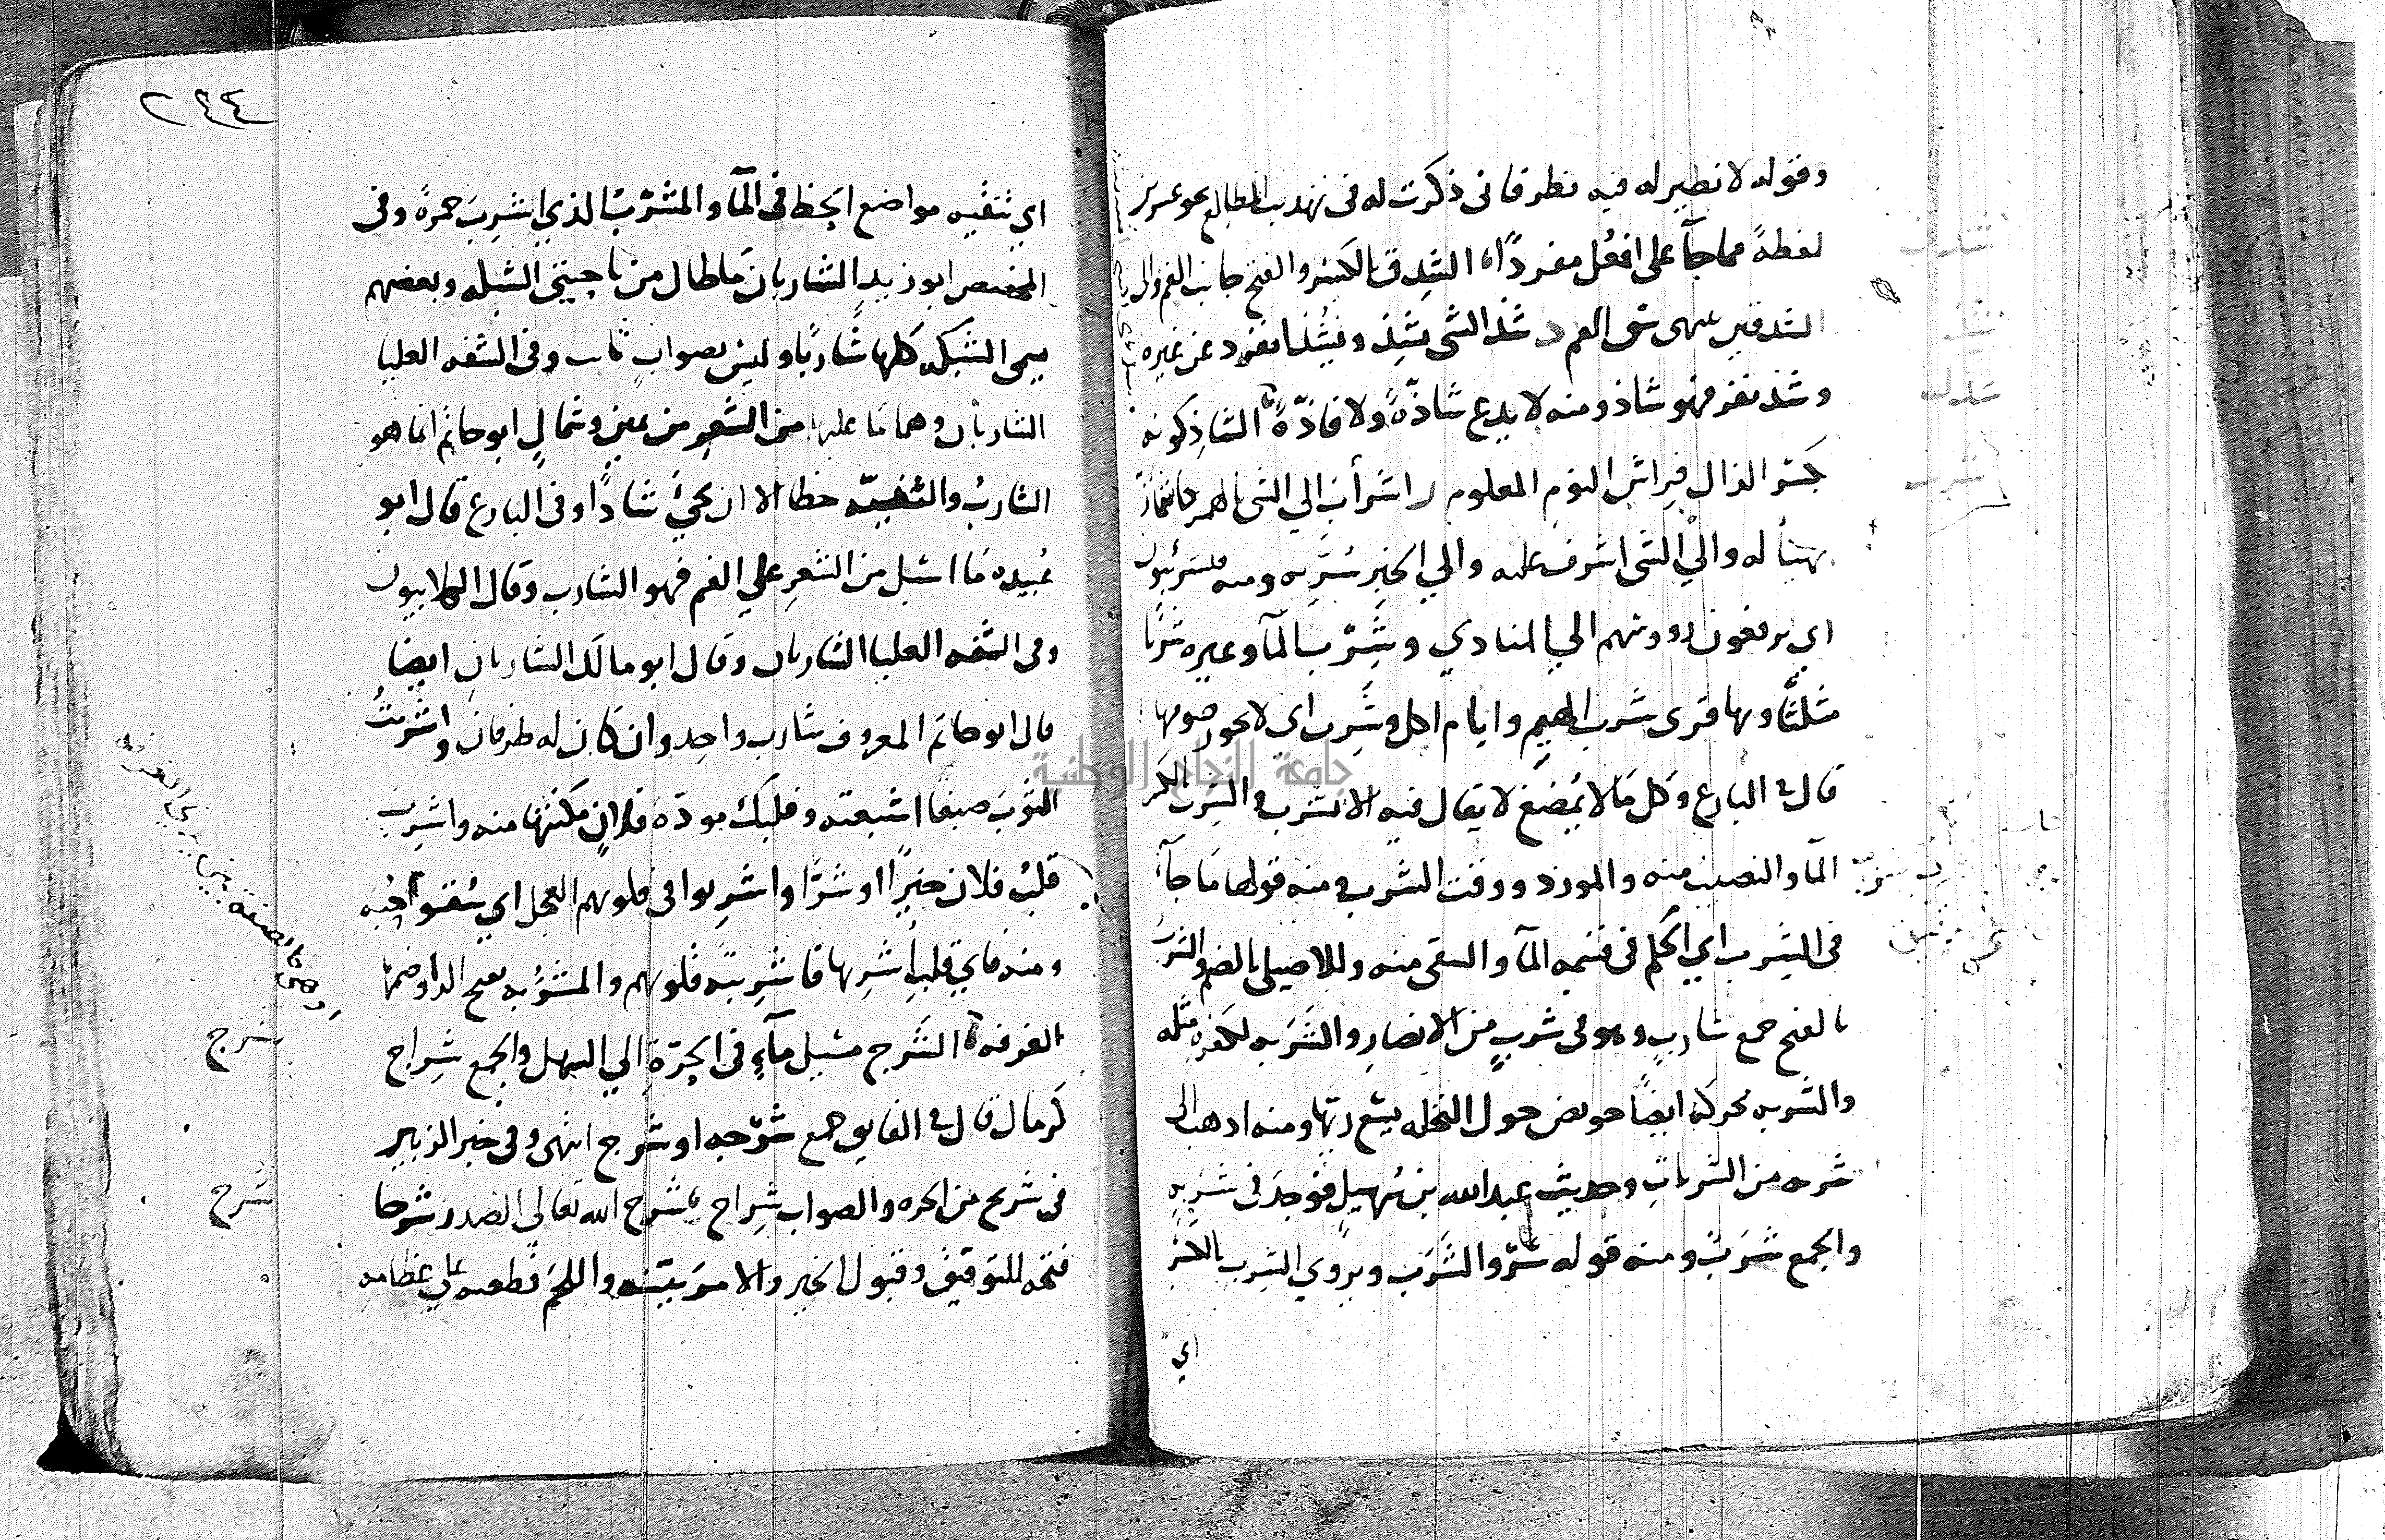 وقوله لا نظير له فيه نظر فانى ذكرت له فى تهذيب المطالع نحو عشرين
لفظةً مما جآ على افعُل مفردًا الشِدق بالكسر والفتح جانب الفم والى
الشدقين ينتهى شق الفم د شذ الشى يشِذ ويشُذ انفرد عن غيره
وشذ نفر فهو شاذ ومنه لا يدع شاذّةً ولا فاذّةً الشاذكونه
بكسر الذال فِراش النوم المعلوم ر اشرأبّ الي الشى بالهمز كاشمأزّ
تهيأ له والي الشى اشرف عليه والي الخير سُرَّ به ومنه فيشرئبون
اي يرفعون رووسهم الي المنادي وشَرِب المآ وغيره شربًا
مثلثًا وبها قرى شرب الهيم وايام اكل وشرب اى لا يجوز صومها
قال فى البارع وكل ما لا يُمضغ لا يقال فيه الا يشرب والشِرب بالكسر
المآ والنصيب منه والمورد ووقت الشرب ومنه قولها ما جآ
فى الشِرب اي الحكم فى قسمه المآ والسقى منه وللاصيلى بالضم والشَرب
بالفتح جمع شاربٍ وهو فى شربٍ من الانصار والشَرَبه ككفره مثله
والشَربه محركه ايضًا حويض حول النخله يسَع رِيّها ومنه اذهب الى
شربه من الشربات وحديث عبد الله بن سُهيل فوُجد فى شربه
والجمع شَرَبٌ ومنه قوله شرّ والشَرَب ويروي الشِرب بالكسر
اي
٢٩٤
اي تنقيه مواضع الحظ فى المآ والمشرّب الذي اشرِب حمرةً وفى
المخصص ابو زيدٍ الشاربان ما طال من ناحيتى السَبله وبعضهم
يسمى السبله كلها شاربًا وليس بصواب ثابت وفى الشفه العليا
الشاربان وهما ما عليها من الشعر من يمينٍ وشمالٍ ابو حاتم انما هو
الشارب والتثنيه خطا الا ان يجئ شاذًا وفى البارع قال ابو
عُبيده ما اسبل من الشعر علي الفم فهو الشارب وقال الكلابيون
وفى الشفه العليا الشاربان وقال ابو مالك الشاربان ايضا
قال ابو حاتم المعروف شارب واحد وان كان له طرفان واشربتُ
الثوب صبغًا اشبعته وقلبك مودّة فلانٍ مكنتها منه واشرِب
قلبُ فلان خيرًا او شرًا واشربوا فى قلوبهم العجل اي سُقوا حبه
ومنه فاي قلبٍ اشربها فاشربته قلوبهم والمشرُبه بفتح الرا وضمها
الغرفه الشَرج مسيل مآءٍ فى الحرّة الي السهل والجمع شِراج
كرمال قال فى الفايق جمع شَرْجه او شرج انتهى وفى خبر الزبير
فى شريج من الحره والصواب شِراج شرح الله تعالي الصدر شرحا
فتحه للتوفيق وقبول الخير والامر بيّنه واللحمَ قطعه علي عظامه
شرج
شرح
جامعة النجاح الوطنية